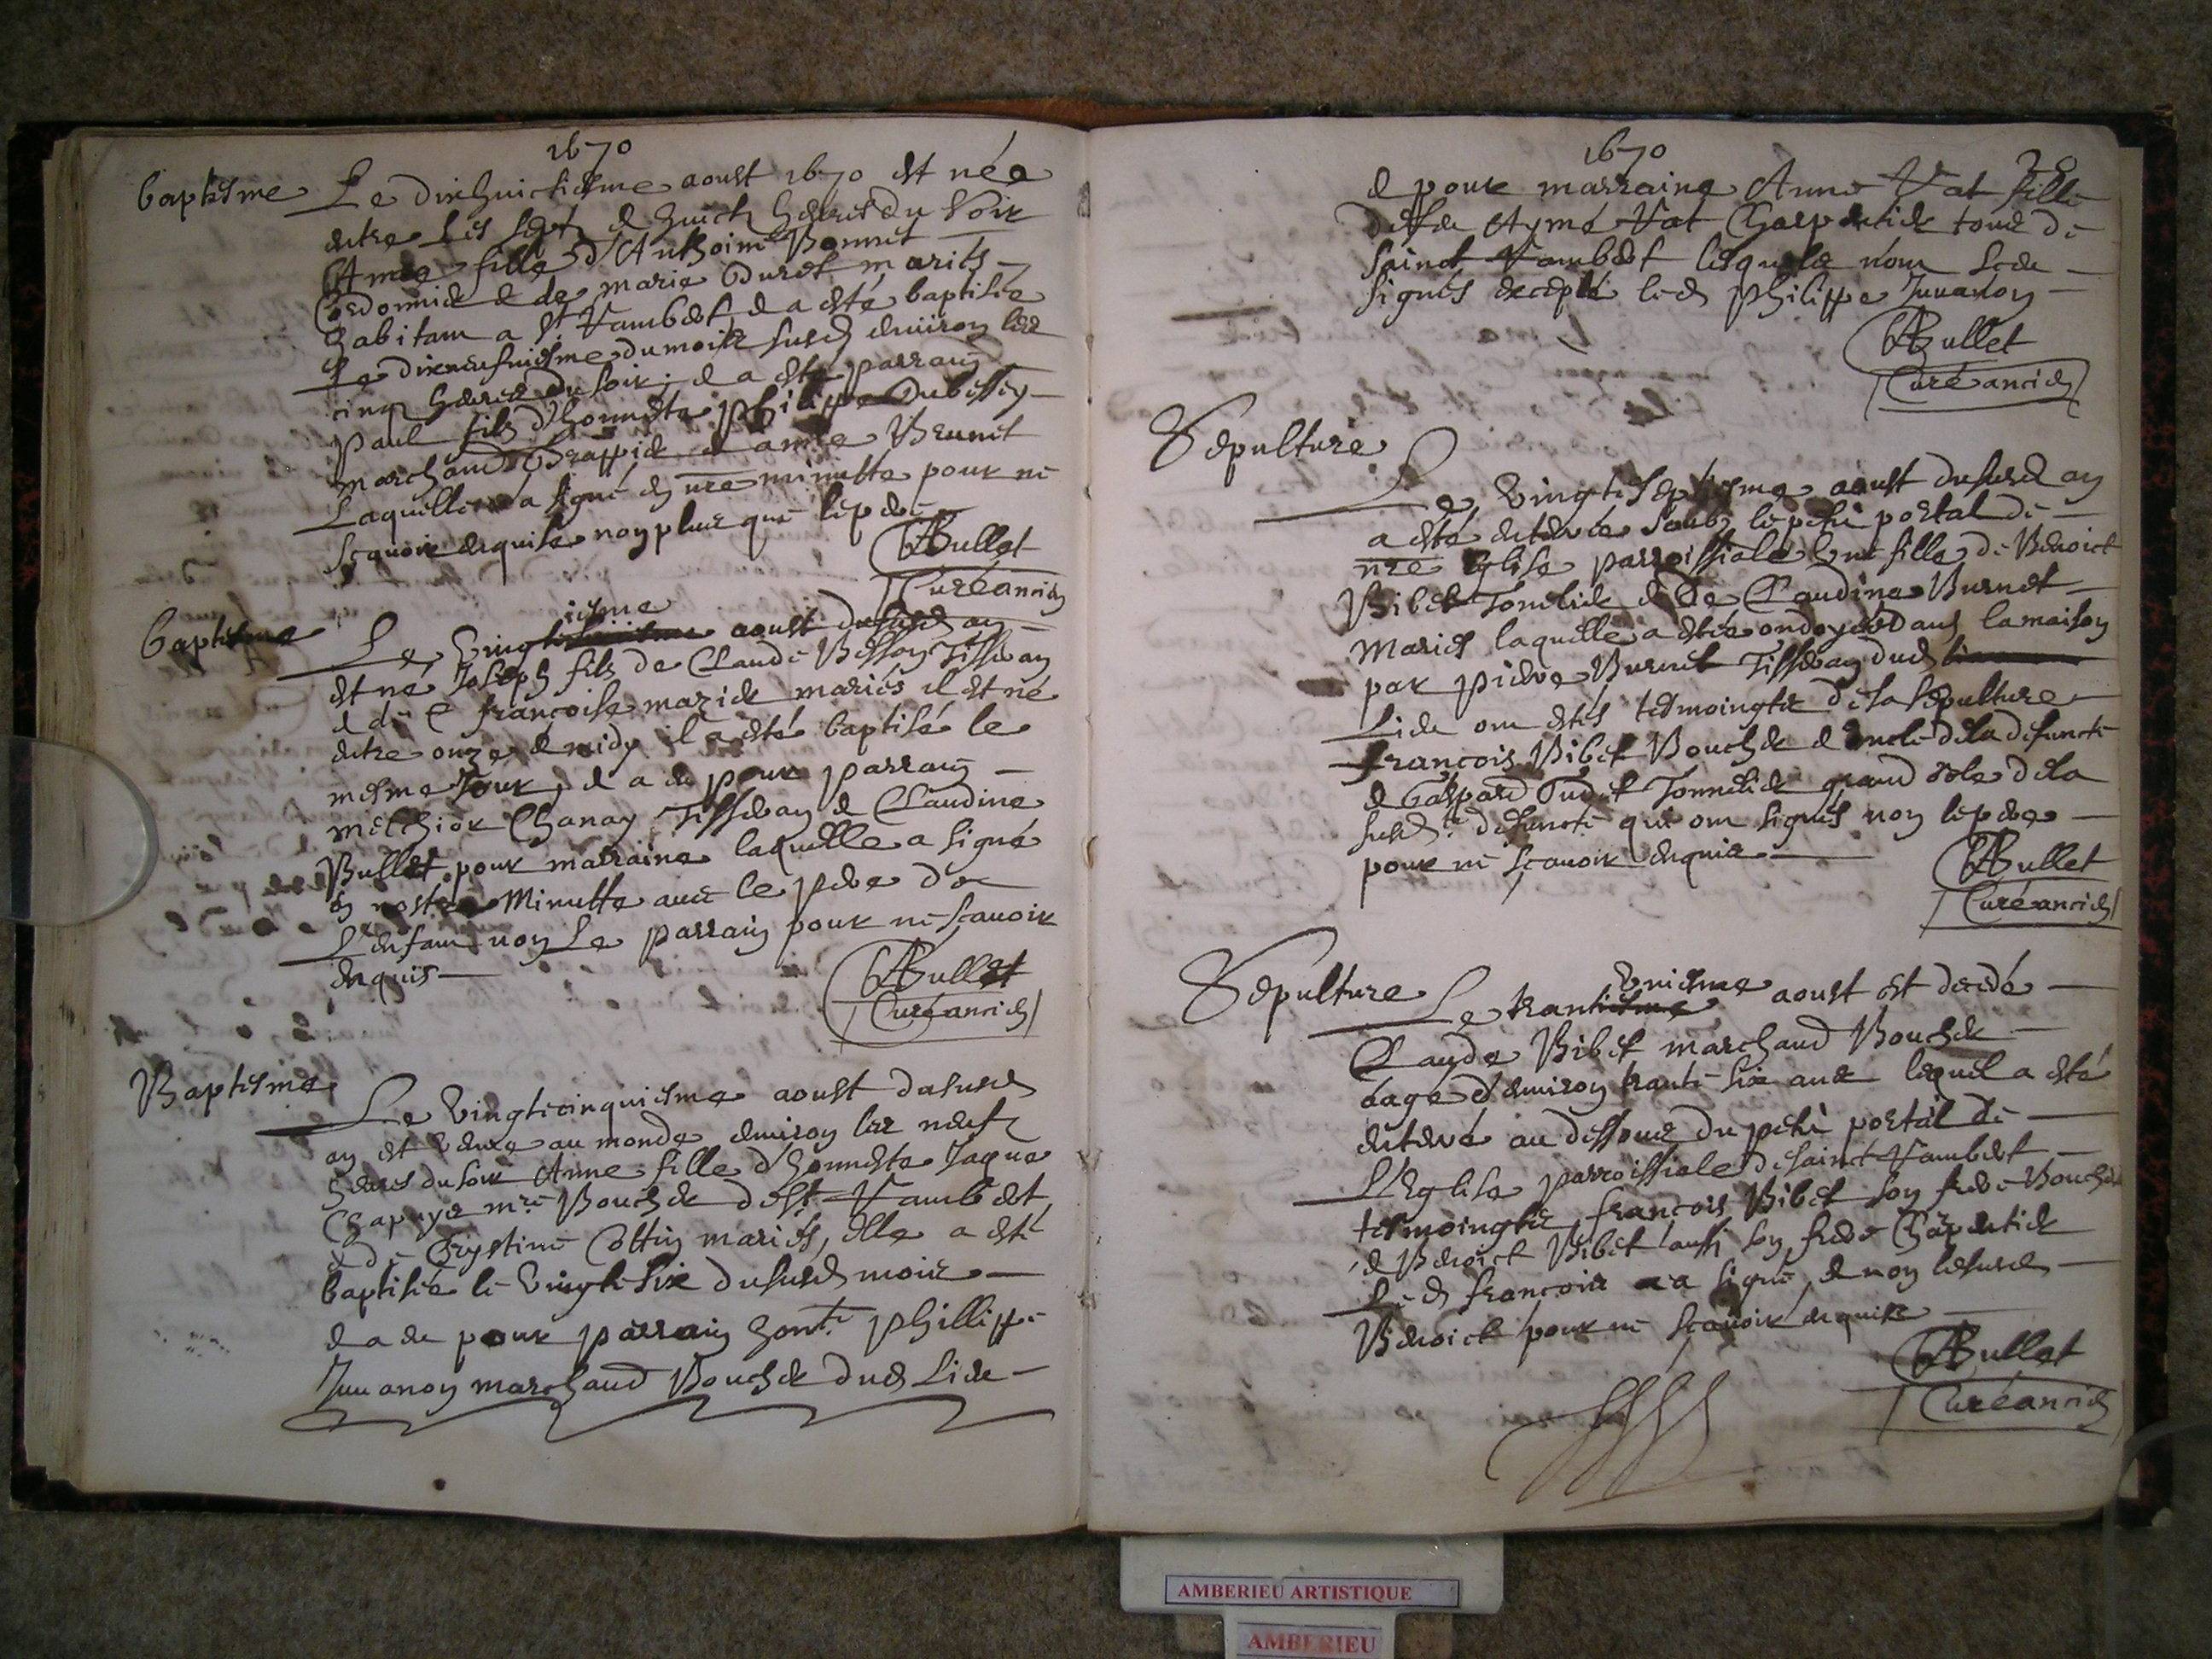 1670
baptesme Le dixhuictiesme aoust 1670 est née
entre les sept et huict heures du soir
Aimée fille d'Anthoine Bonnet
Cordonnier et de marie Duret mariés
habitans a St Rambert et a esté baptisée
Le dixneufuiesme du mois susd environ les
cinq heures du soir, et a esté parrain
Paul fils d'honneste Philippe Dubessey
marchand Drappier et anne Brunet
Laquelle a signé en nre minutte pour ne
sçauoir enquise non plus que le pere
Bullet
Curé ancien
iesme
baptesme Le Vingt aoust dususd an
est né Joseph fils de Claude Besson Tisseran
et de françoise marier mariés il est né
entre onze et midy il a esté baptisé le
mesme Jour, et a eu pour parrain
melchior Chanay Tisseran et Claudine
Bullet pour marraine laquelle a signé
en nostre Minutte auec le pere de
L'enfant non Le parrain pour ne scauoir
enquis
Bullet
Curé ancien
Baptesme Le Vingtcinquiesme aoust dususd
an est Venue au monde enuiron les neuf
heures du soir Anne fille d'honneste Jaque
Chapuys mre Boucher de St Rambert
et de Crystine Cottin mariés, elle a esté
baptisée le Vingt six dususd mois
et a eu pour parrain hont. Phillippe
Juuanon marchand Boucher dud Lieu
1670
28
et pour marraine Anne Vat fille
de feu Aymé Vat Charpentier tous de
sainct Rambert lesquels nont sceu
signés excepté led Philippe Juuanon
Bullet
Curé ancien
Sepulture
Le Vingt septiesme aoust dususd an
a esté enterrée soubz le petit portal de
nre Eglise parroissiale une fille de Benoict
Bibet Tonelier et de Claudine Burnet
Mariés laquelle a estée ondoyée dans la maison
par Pierre Burnet Tisseran dud
Lieu ont estés tesmoingtz de la sepulture
françois Bibet Boucher et oncle de la defuncte
et Gaspard Tonnelier grand de la
susd.te defuncte qui ont signés non le pere
pour ne scauoir enquis
Bullet
Curé ancien
Vniesme
Sepulture Le trantiesme aoust est decedé
Claude Bibet marchand Boucher
aagé d'enuiron trante six ans lequel a esté
enterré au dessous du petit portal de
L'Eglise parroissiale de sainct Rambert
tesmoingtz françois Bibet son frere Boucher
et Benoict Bibet aussi son frere Charpentier
Led françois a signé, et non lesusd
Benoict pour ne scauoir enquis
Bullet
Curé ancien
AMBERIEU ARTISTIQUE
AMBERIEU